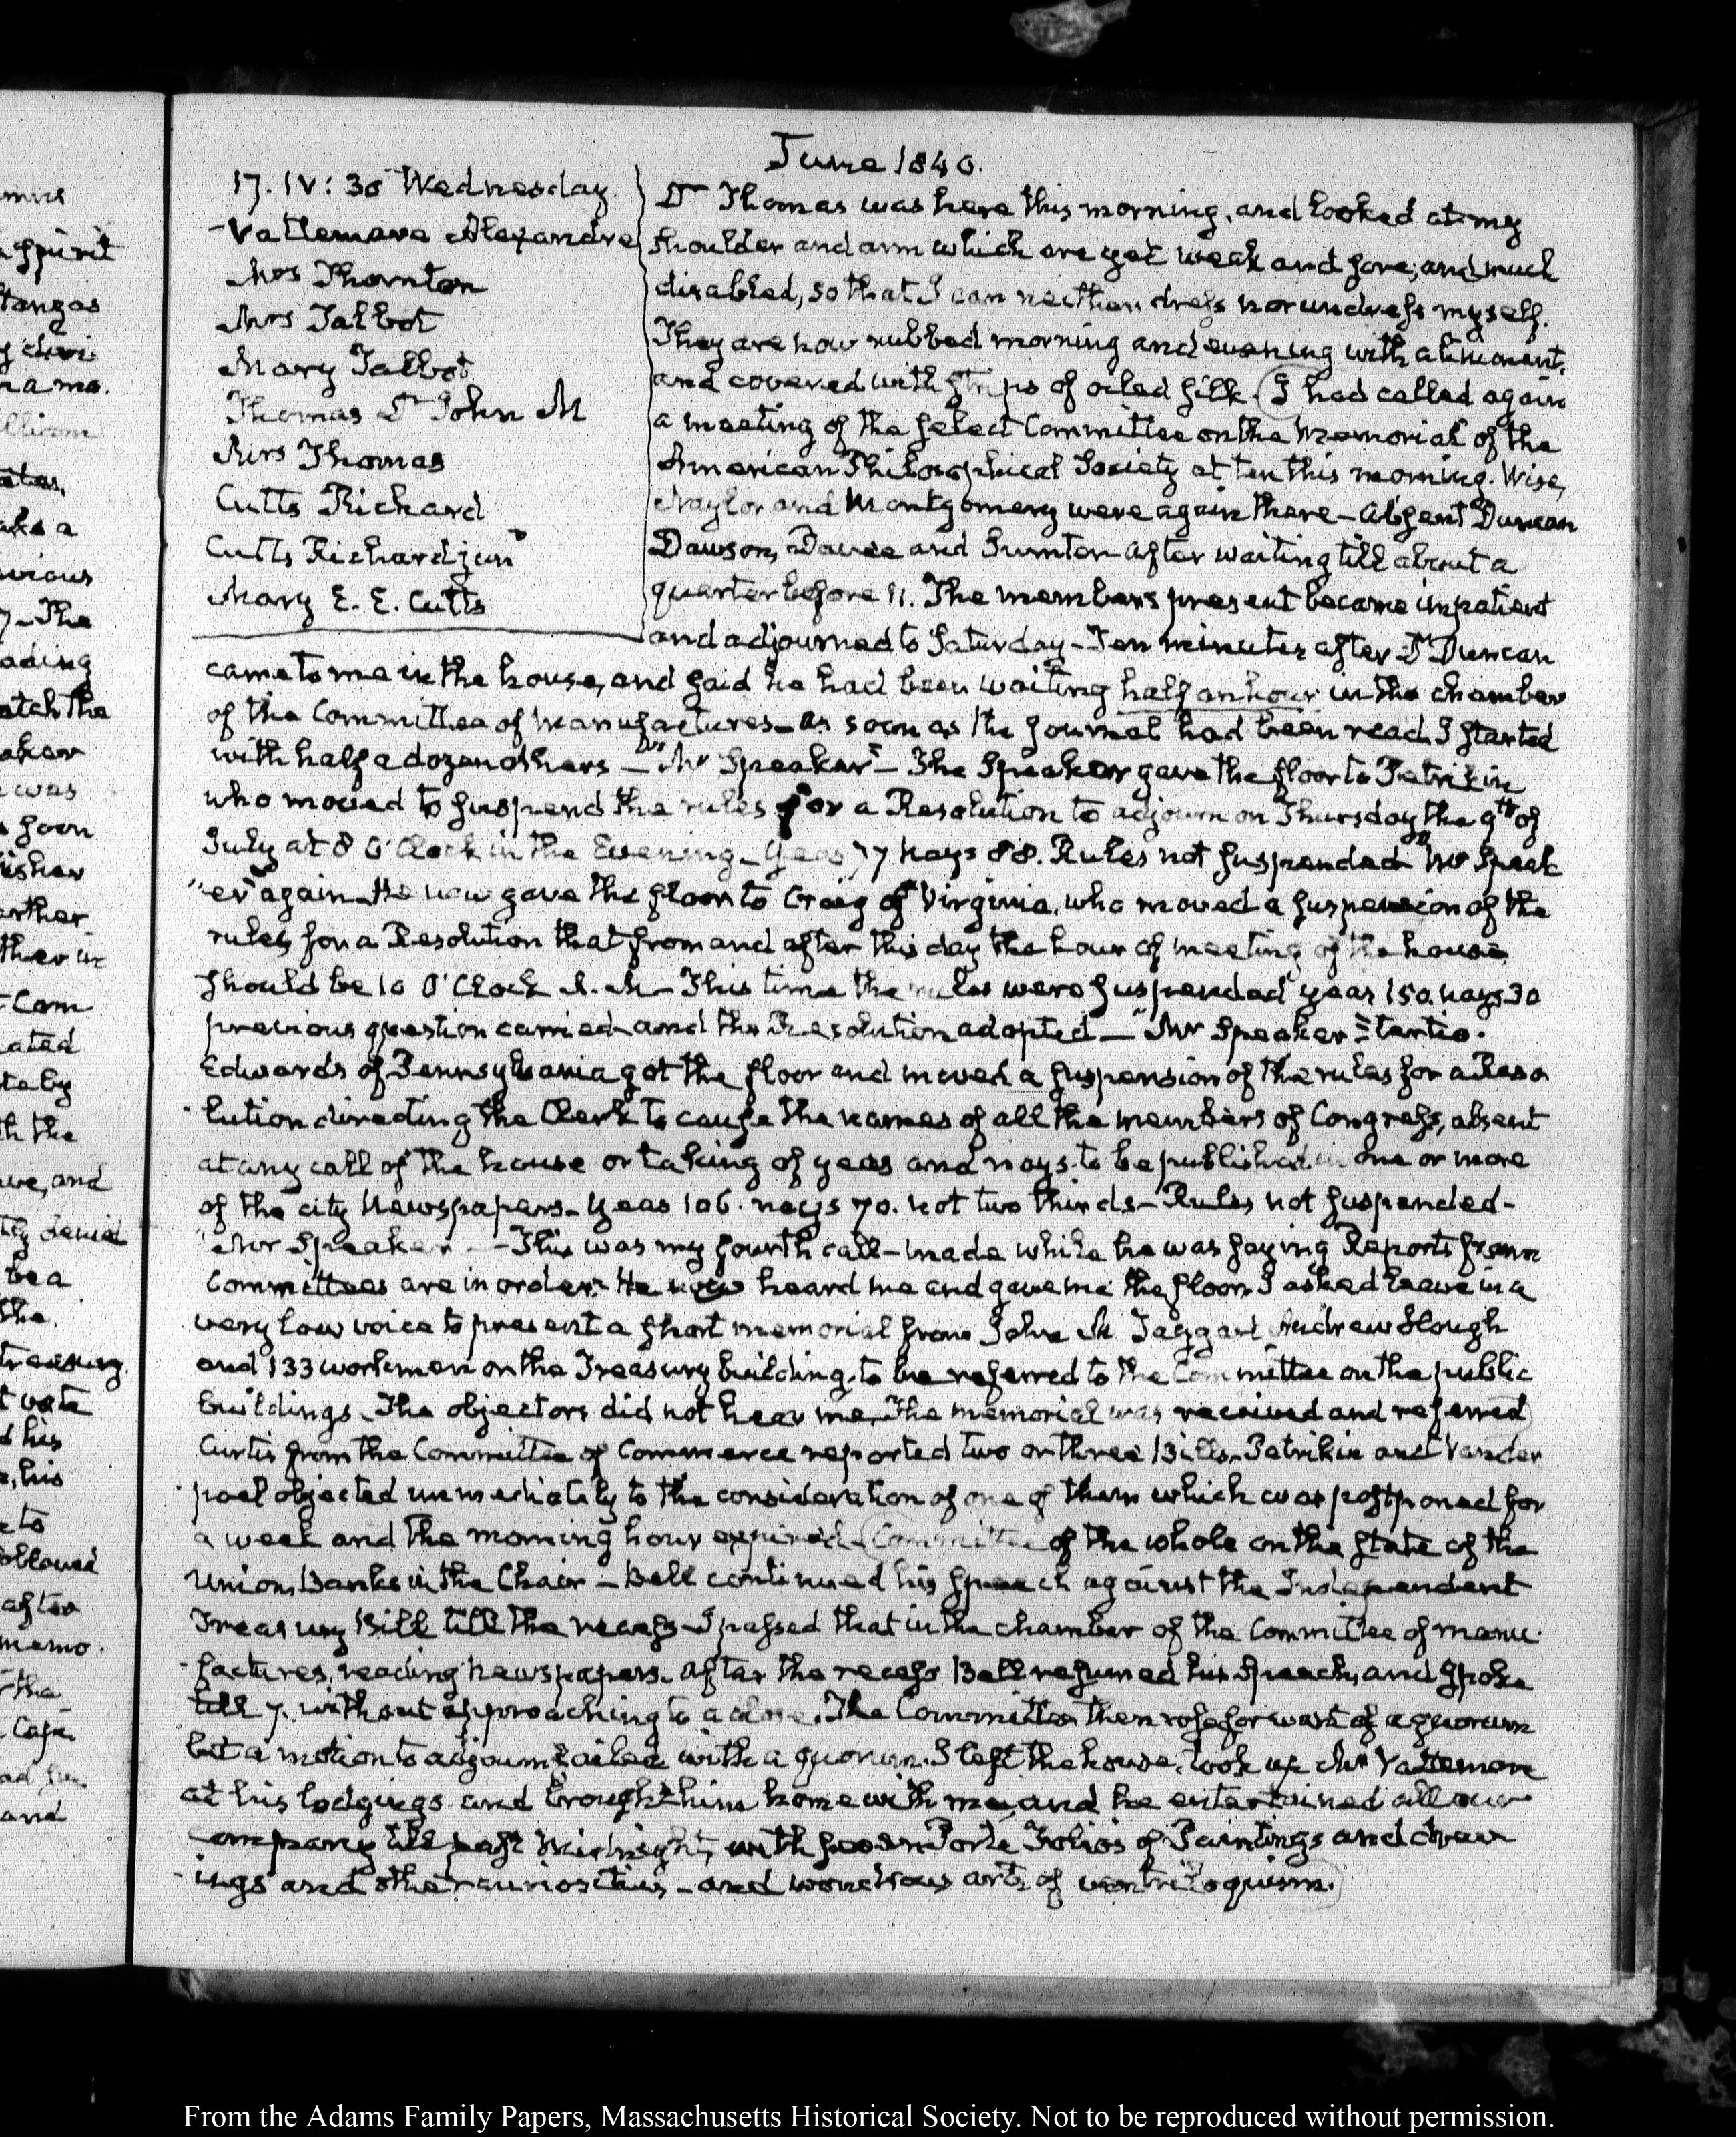 June 1840.
17. IV: 30 Wednesday.
Vattemare Alexandre
Mrs Thornton
Mrs Talbot
Mary Talbot
Thomas Dr John M
Mrs Thomas
Cutts Richard
Cutts Richard junr
Mary E. E. Cutts
Dr Thomas was here this morning, and looked at my
shoulder and arm which are yet weak and sore, and much
disabled, so that I can neither dress nor undress myself.
They are now rubbed morning and evening with a liniment,
and covered with strips of oiled silk. I had called again
a meeting of the select Committee on the Memorial of the
American Philosophical Society at ten this morning. Wise,
Naylor and Montgomery were again there – absent Duncan
Dawson, Davee and Sumter. After waiting till about a
quarter before 11. The members present became impatient
and adjourned to Saturday – Ten minutes after Dr Duncan
came to me in the house, and said he had been waiting half an hour in the chamber
of the Committee of Manufactures – As soon as the journal had been read I started
with half a dozen others – "Mr Speaker" – The Speaker gave the floor to Petrikin
who moved to suspend the rules for a Resolution to adjourn on Thursday the 9th of
July at 8 O'Clock in the Evening – Yeas 77 Nays 88. Rules not suspended "Mr Speak
"er" again – He now gave the floor to Craig of Virginia, who moved a suspension of the
rules for a Resolution that from and after this day the hour of meeting of the house
should be 10 O'Clock A.M – This time the rules were suspended yeas 150. nays 30
previous question carried and the Resolution adopted – "Mr Speaker" tertio.
Edwards of Pennsylvania got the floor and moved a suspension of the rules for a Reso
lution directing the Clerk to cause the names of all the members of Congress, absent
at any call of the house or taking of yeas and nays to be published in one or more
of the city Newspapers – Yeas 106. nays 70. not two thirds – Rules not suspended –
"Mr Speaker – This was my fourth call – made while he was saying Reports from
Committees are in order. He now heard me and gave me the floor I asked leave in a
very low voice to present a short memorial from John M Taggart Andrew Slough
and 133 workmen on the Treasury building, to be referred to the Committee on the public
buildings. The objectors did not hear me. The memorial was received and referred
Curtis from the Committee of Commerce reported two or three Bills. Petrikin and Vander
poel objected immediately to the consideration of one of them which was postponed for
a week and the morning hour expired – Committee of the whole on the state of the
Union, Banks in the Chair – Bell continued his speech against the Independent
Treasury Bill till the recess – I passed that in the chamber of the Committee of manu
factures, reading newspapers. After the recess Bell resumed his Speech, and spoke
till 7. without approaching to a close. The Committee then rose for want of a quorum
but a motion to adjourn failed with a quorum. I left the house, took up Mr Vattemare
at his lodgings and brought him home with me, and he entertained all our
company till past Midnight, with Porte Folios of Paintings and draw
ings and other curiosities – and wondrous arts of ventriloquism.
From the Adams Family Papers, Massachusetts Historical Society. Not to be reproduced without permission.